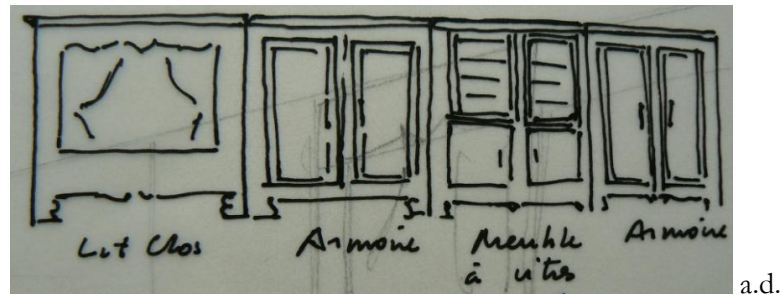 Lit Clos
Armoire
Meuble
à vitres
Armoire
a.d.